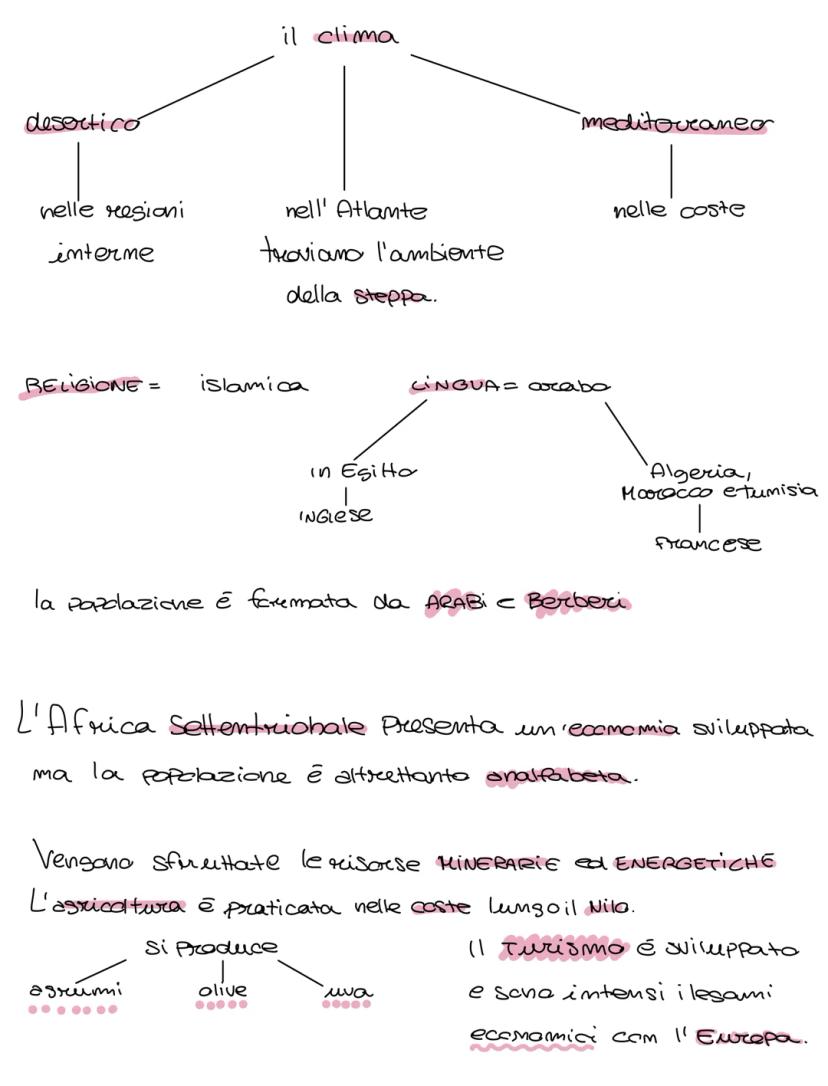 il clima
desertico
mediterraneo
nelle regioni
interne
nell' Atlante
troviamo l'ambiente
della steppa.
nelle coste
RELIGIONE = islamica
LINGUA = araba
in Egitto
INGlese
Algeria,
Marocco e tunisia
francese
la popolazione é formata da ARABi e Berberi
L'Africa Settentrionale presenta un'economia sviluppata
ma la popolazione é altrettanto analfabeta.
Vengono sfruttate le risorse MINERARIE ed ENERGETICHE
L'agricoltura é praticata nelle coste lungo il Nilo.
Si produce
agrumi
olive
uva
Il Turismo é sviluppato
e sono intensi i legami
economici com l'Europa.